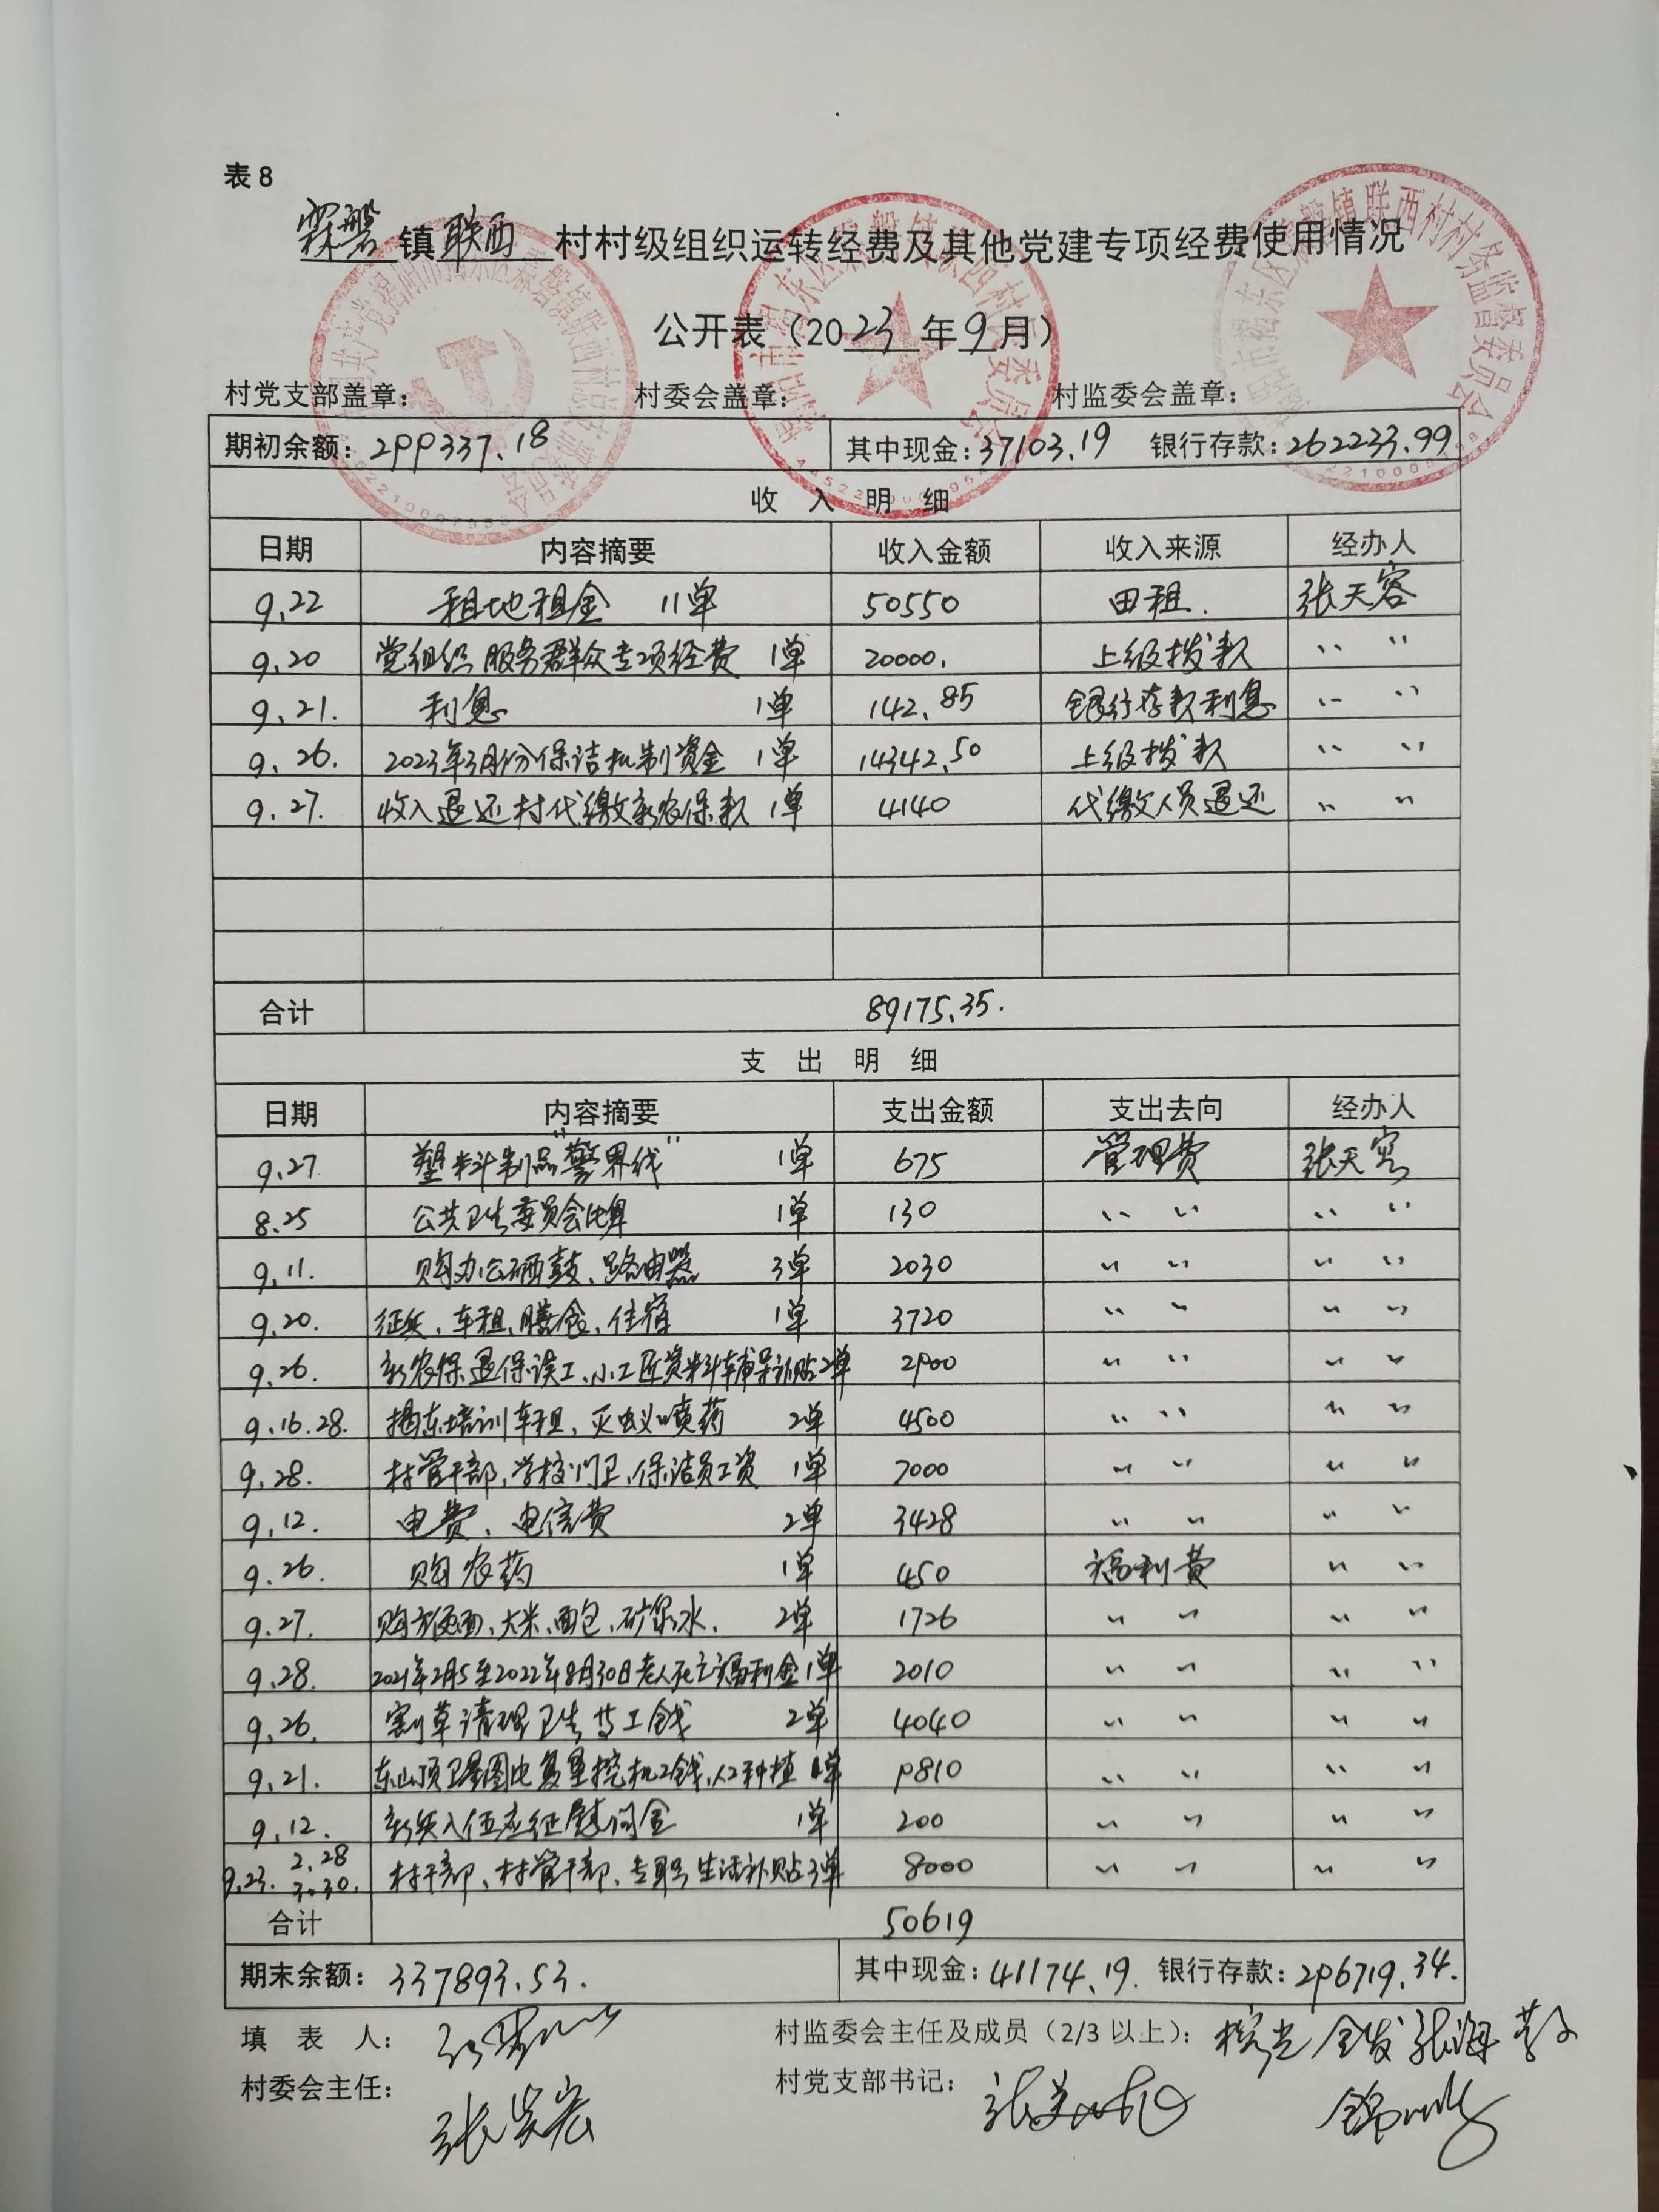 表8
霖磐镇联西村村级组织运转经费及其他党建专项经费使用情况
公开表（2023年9月）
村党支部盖章： 村委会盖章： 村监委会盖章：
期初余额：299337.18 其中现金：37103.19 银行存款：262233.99
收 入 明 细
日期 内容摘要 收入金额 收入来源 经办人
9.22 租地租金 11单 50550 田租. 张天容
9.20 党组织服务群众专项经费 1单 20000. 上级拨款 〃 〃
9.21. 利息 1单 142.85 银行存款利息 〃 〃
9.26. 2023年3月份保洁机制资金 1单 14342.50 上级拨款 〃 〃
9.27. 收入退还村代缴新农保款 1单 4140 代缴人员退还 〃 〃
合计 89175.35.
支 出 明 细
日期 内容摘要 支出金额 支出去向 经办人
9.27 塑料制品“警界线” 1单 675 管理费 张天容
8.25 公共卫生委员会牌 1单 130 〃 〃 〃 〃
9.11. 购办公硒鼓、路由器 3单 2030 〃 〃 〃 〃
9.20. 征兵、车租、膳食、住宿 1单 3720 〃 〃 〃 〃
9.26. 新农保退保误工、小工匠资料辅导补贴2单 2900 〃 〃 〃 〃
9.16.28. 揭东培训车租、灭蚊喷药 2单 4500 〃 〃 〃 〃
9.28. 村管干部,学校门卫,保洁员工资 1单 7000 〃 〃 〃 〃
9.12. 电费、电信费 2单 3428 〃 〃 〃 〃
9.26. 购农药 1单 450 福利费 〃 〃
9.27. 购方便面、大米、面包、矿泉水. 2单 1726 〃 〃 〃 〃
9.28. 2021年2月5至2022年8月30日老人死亡福利金1单 2010 〃 〃 〃 〃
9.26. 割草清理卫生 工钱 2单 4040 〃 〃 〃 〃
9.21. 东山顶卫星图 复垦挖机工钱,人工种植 单 9810 〃 〃 〃 〃
9.12. 新兵入伍应征慰问金 1单 200 〃 〃 〃 〃
9.23. 2.28 3.30. 村干部、村管干部、专职生活补贴3单 8000 〃 〃 〃 〃
合计 50619
期末余额：337893.53. 其中现金：41174.19. 银行存款：296719.34.
填 表 人： 村监委会主任及成员（2/3以上）：
村委会主任： 村党支部书记：